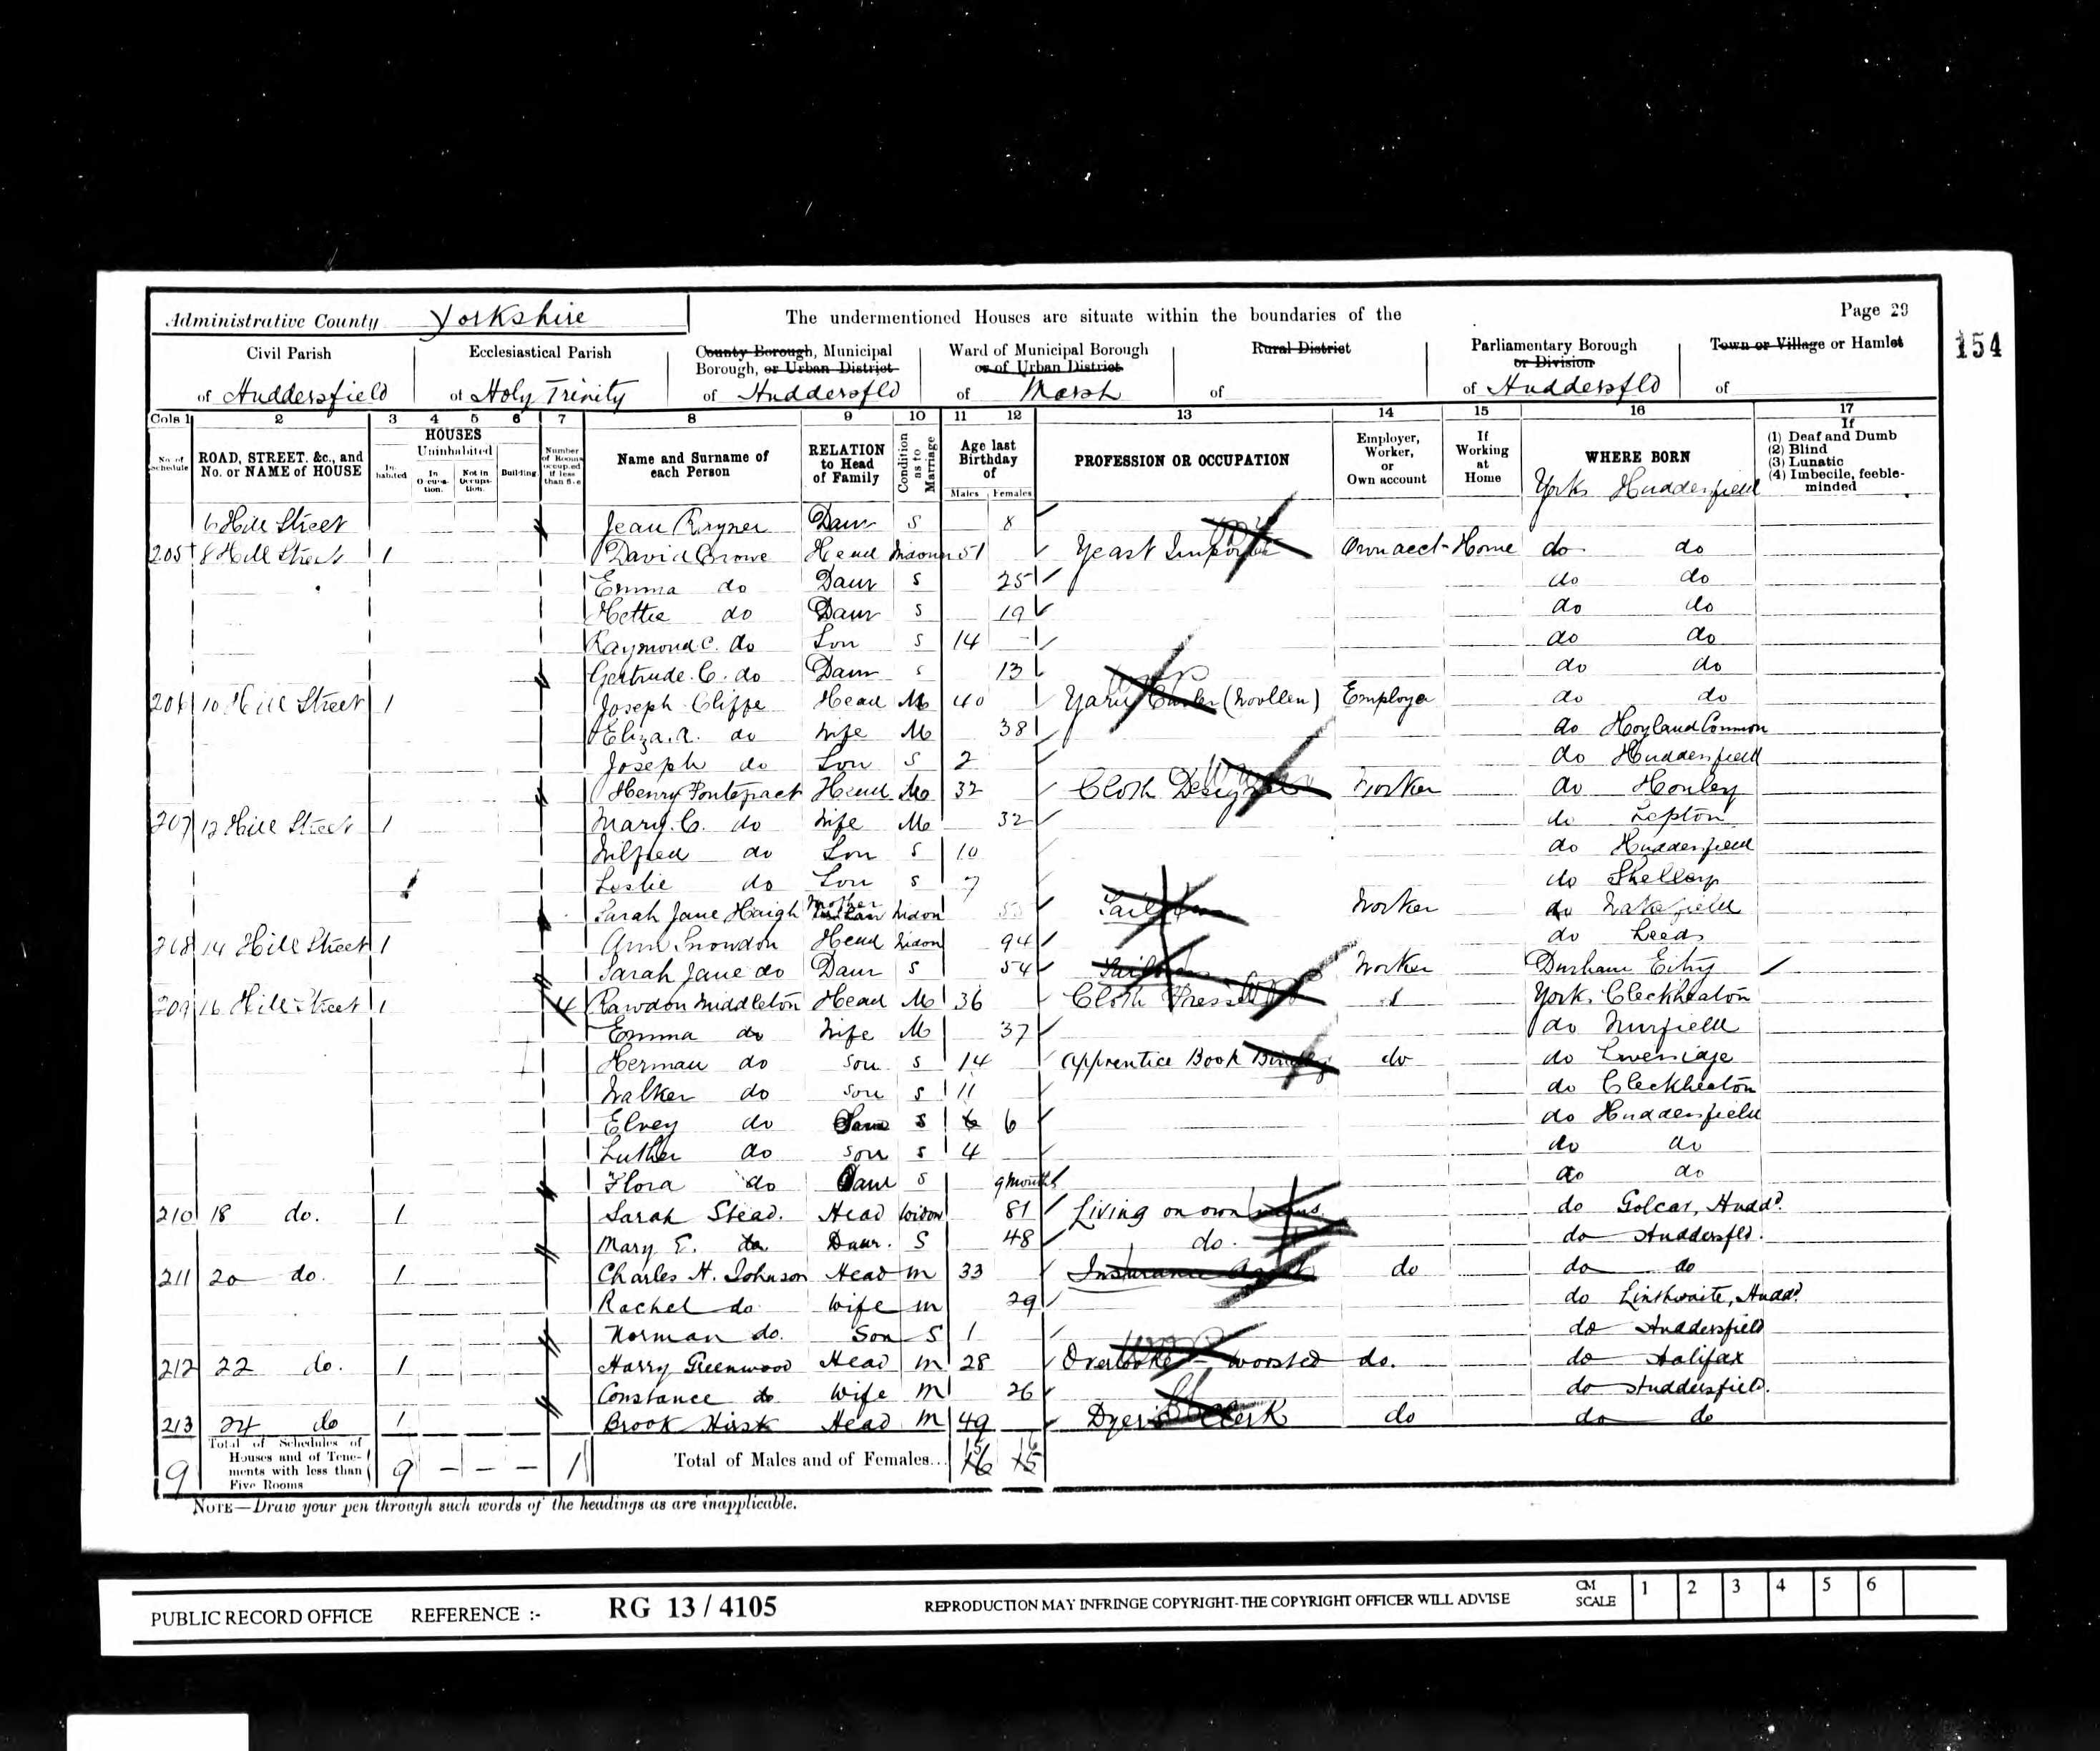 Administrative County Yorkshire The undermentioned Houses are situate within the boundaries of the Page 29
154
Civil Parish Ecclesiastical Parish County Borough, Municipal Borough, or Urban District Ward of Municipal Borough or of Urban District Rural District Parliamentary Borough or Division Town or Village or Hamlet
of Huddersfield of Holy Trinity of Huddersfld of Marsh of of Huddersfld of
Cols 1 2 3 4 5 6 7 8 9 10 11 12 13 14 15 16 17
No. of Schedule ROAD, STREET, &c., and No. or NAME of HOUSE HOUSES Inhabited Uninhabited In Occupation. Not in Occupation. Building Number of Rooms occupied if less than five Name and Surname of each Person RELATION to Head of Family Condition as to Marriage Age last Birthday of Males Females PROFESSION OR OCCUPATION Employer, Worker, or Own account If Working at Home WHERE BORN If (1) Deaf and Dumb (2) Blind (3) Lunatic (4) Imbecile, feeble-minded
6 Hill Street Jean Rayner Daur S 8 Yorks Huddersfield
205 8 Hill Street 1 David Crowe Head Widower 51 Yeast Importer Own acct Home do do
Emma do Daur S 25 do do
Hettie do Daur S 19 do do
Raymond C. do Son S 14 do do
Gertrude. C. do Daur S 13 do do
206 10 Hill Street 1 Joseph Cliffe Head M 40 Yarn (Woollen) Employer do do
Eliza. A. do Wife M 38 do Hoyland Common
Joseph do Son S 2 do Huddersfield
Henry Pontefract Head M 32 Cloth Designer Worker do Honley
207 12 Hill Street 1 Mary. C. do Wife M 32 do Lepton
Wilfred do Son S 10 do Huddersfield
Leslie do Son S 7 do Shelley
Sarah Jane Haigh Mother Widow Worker do Wakefield
208 14 Hill Street 1 Ann Snowdon Head Widow 94 do Leeds
Sarah Jane do Daur S 54 Worker Durham City
209 16 Hill Street 1 4 Rawdon Middleton Head M 36 Cloth Presser York. Cleckheaton
Emma do Wife M 37 do Mirfield
Herman do Son S 14 Apprentice Book Binding do do Liversidge
Walker do Son S 11 do Cleckheaton
Elvey do S 6 6 do Huddersfield
Luther do Son S 4 do do
Flora do Daur S 9 months do do
210 18 do. 1 Sarah Stead. Head Widow 81 Living on own means do Golcar, Hudd.
Mary E. do Daur. S 48 do. do Huddersfld.
211 20 do. 1 Charles H. Johnson Head M 33 Insurance Agent do do do
Rachel do Wife M 29 do Linthwaite, Hudd.
Norman do. Son S 1 do Huddersfield
212 22 do. 1 Harry Greenwood Head M 28 Overlooker - Worsted do. do Halifax
Constance do Wife M 26 do Huddersfield.
213 24 do 1 Brook Hirst Head M 49 Dyer's Clerk do do do
9 Total of Schedules of Houses and of Tenements with less than Five Rooms 9 — — — 1 Total of Males and of Females... 15 16 16 15
NOTE—Draw your pen through such words of the headings as are inapplicable.
PUBLIC RECORD OFFICE REFERENCE :- RG 13 / 4105 REPRODUCTION MAY INFRINGE COPYRIGHT-THE COPYRIGHT OFFICER WILL ADVISE CM SCALE 1 2 3 4 5 6